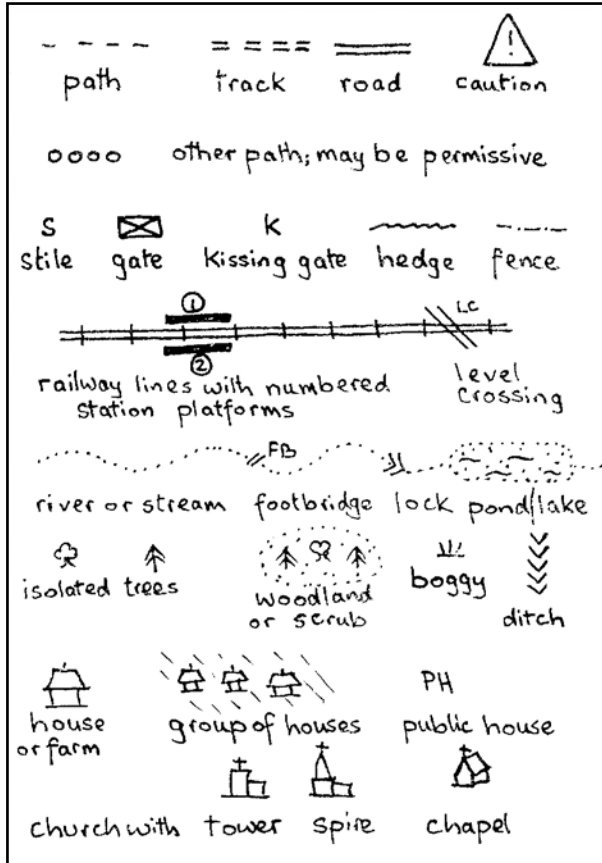 !
path track road caution
other path; may be permissive
S K
stile gate kissing gate hedge fence
1
LC
2
railway lines with numbered
station platforms
level
crossing
FB
river or stream footbridge lock pond/lake
isolated trees
woodland
or scrub
boggy
ditch
PH
house
or farm
group of houses public house
church with tower spire chapel